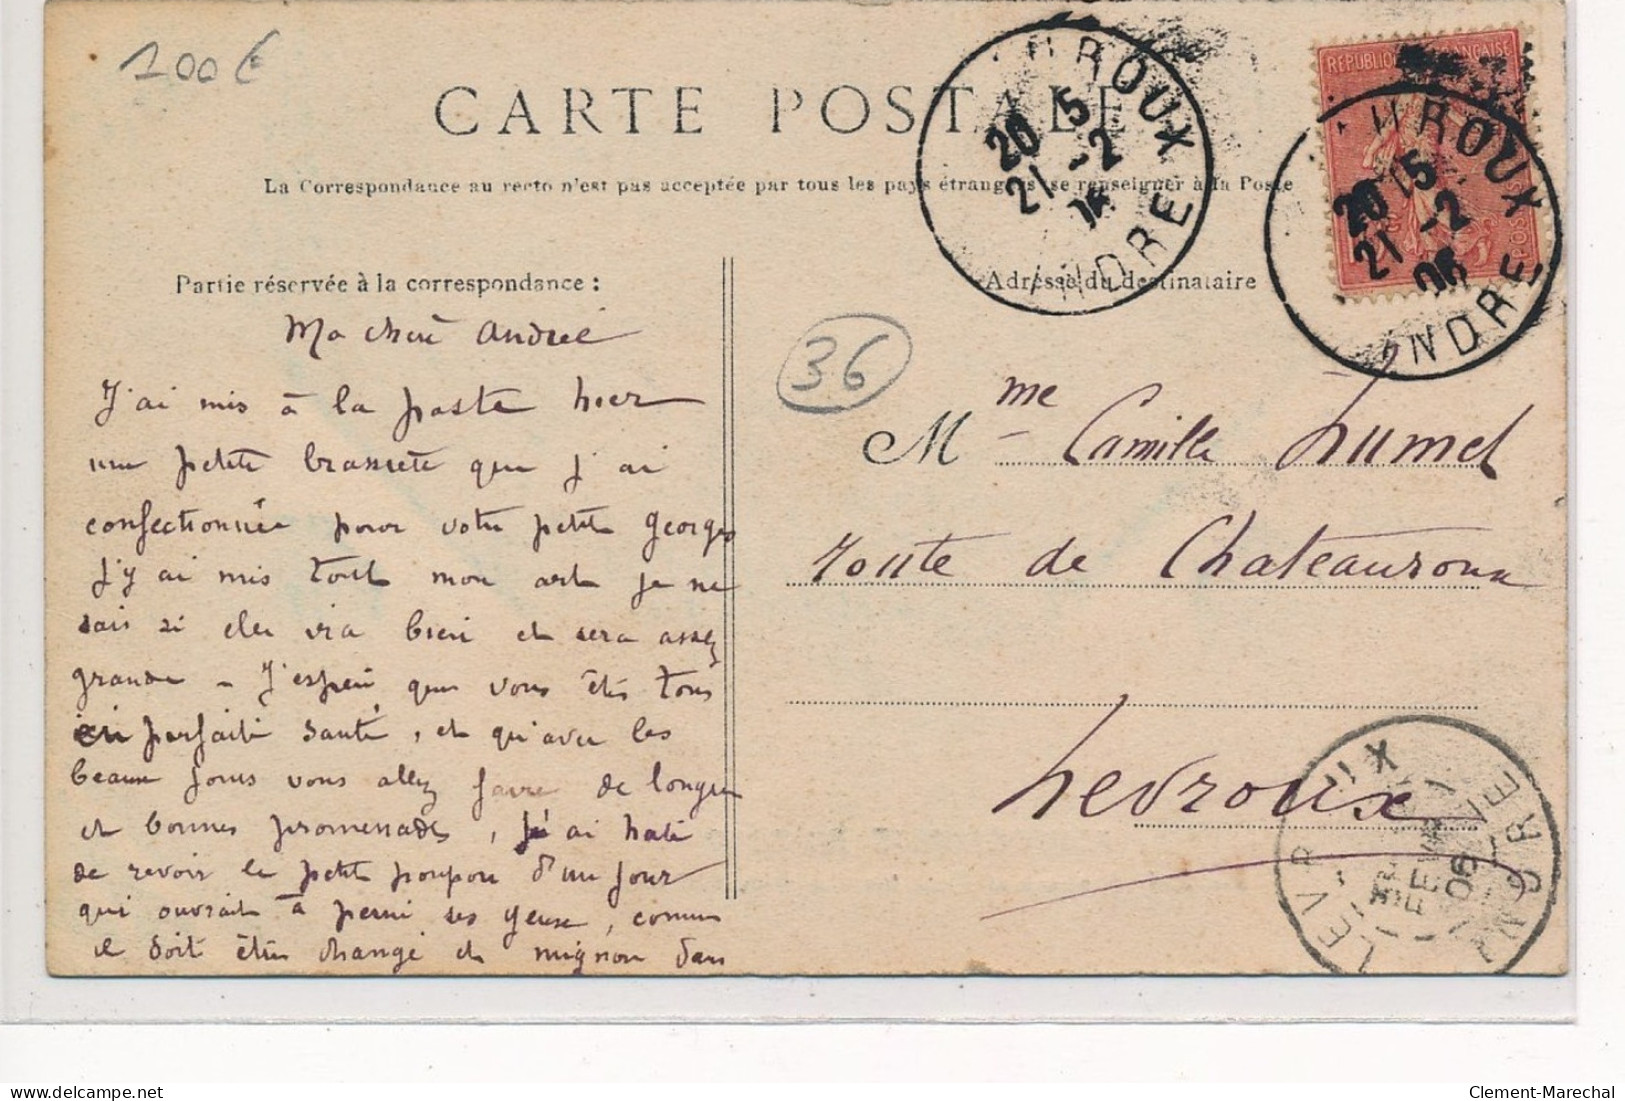 200€
CARTE POSTALE
La Correspondance au recto n'est pas acceptée par tous les pays étrangers (se renseigner à la Poste
Partie réservée à la correspondance :
Adresse du destinataire
REPUBLIQUE FRANÇAISE
UROUX
20 15
21 -2
INDRE
UROUX
20 15
21 -2
06
INDRE
36
Ma chère Andrée
J'ai mis à la poste hier
une petite brassiète que j'ai
confectionnée pour votre petit Georges
J'y ai mis tout mon art je ne
sais si elle ira bien et sera assez
grande - J'espère que vous êtes tous
en parfaite santé, et qu'avec les
beaux jours vous allez faire de longues
et bonnes promenades, j'ai hate
de revoir le petit poupon d'un jour
qui ouvrait à peine ses yeux, comme
il doit être changé et mignon dans
Mme Camille Humel
route de Chateauroux
Levroux
LEVROUX
FEVR
06
INDRE
Clement-Marechal